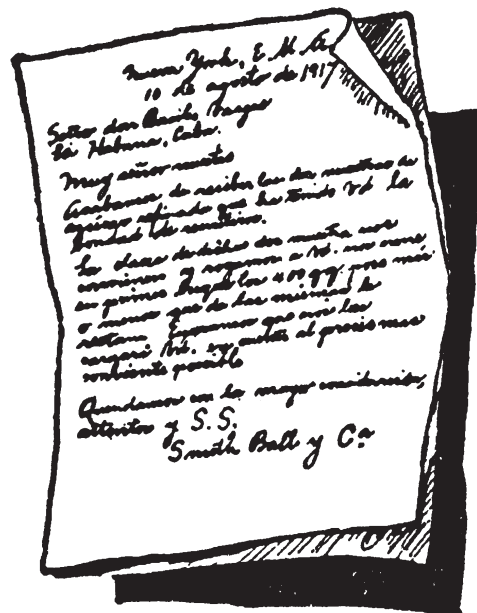 Nueva York, E. U. A.
10 de agosto de 1917
Señor don Basilio Vargas
La Habana, Cuba.
Muy señor nuestro
Acabamos de recibir las dos muestras de
azúcar refinado que ha tenido Vd la
bondad de remitirnos.
La clase de dichas dos muestra nos
convienen y rogamos a Vd. nos mande
en primer lugar los 400 qq. poco más
o menos que de las mismas le
restan. Esperamos que nos las
cargará Vd. en cuenta al precio mas
conveniente posible
Quedamos con la mayor consideración,
attentos y S. S.
Smith Ball y Cª